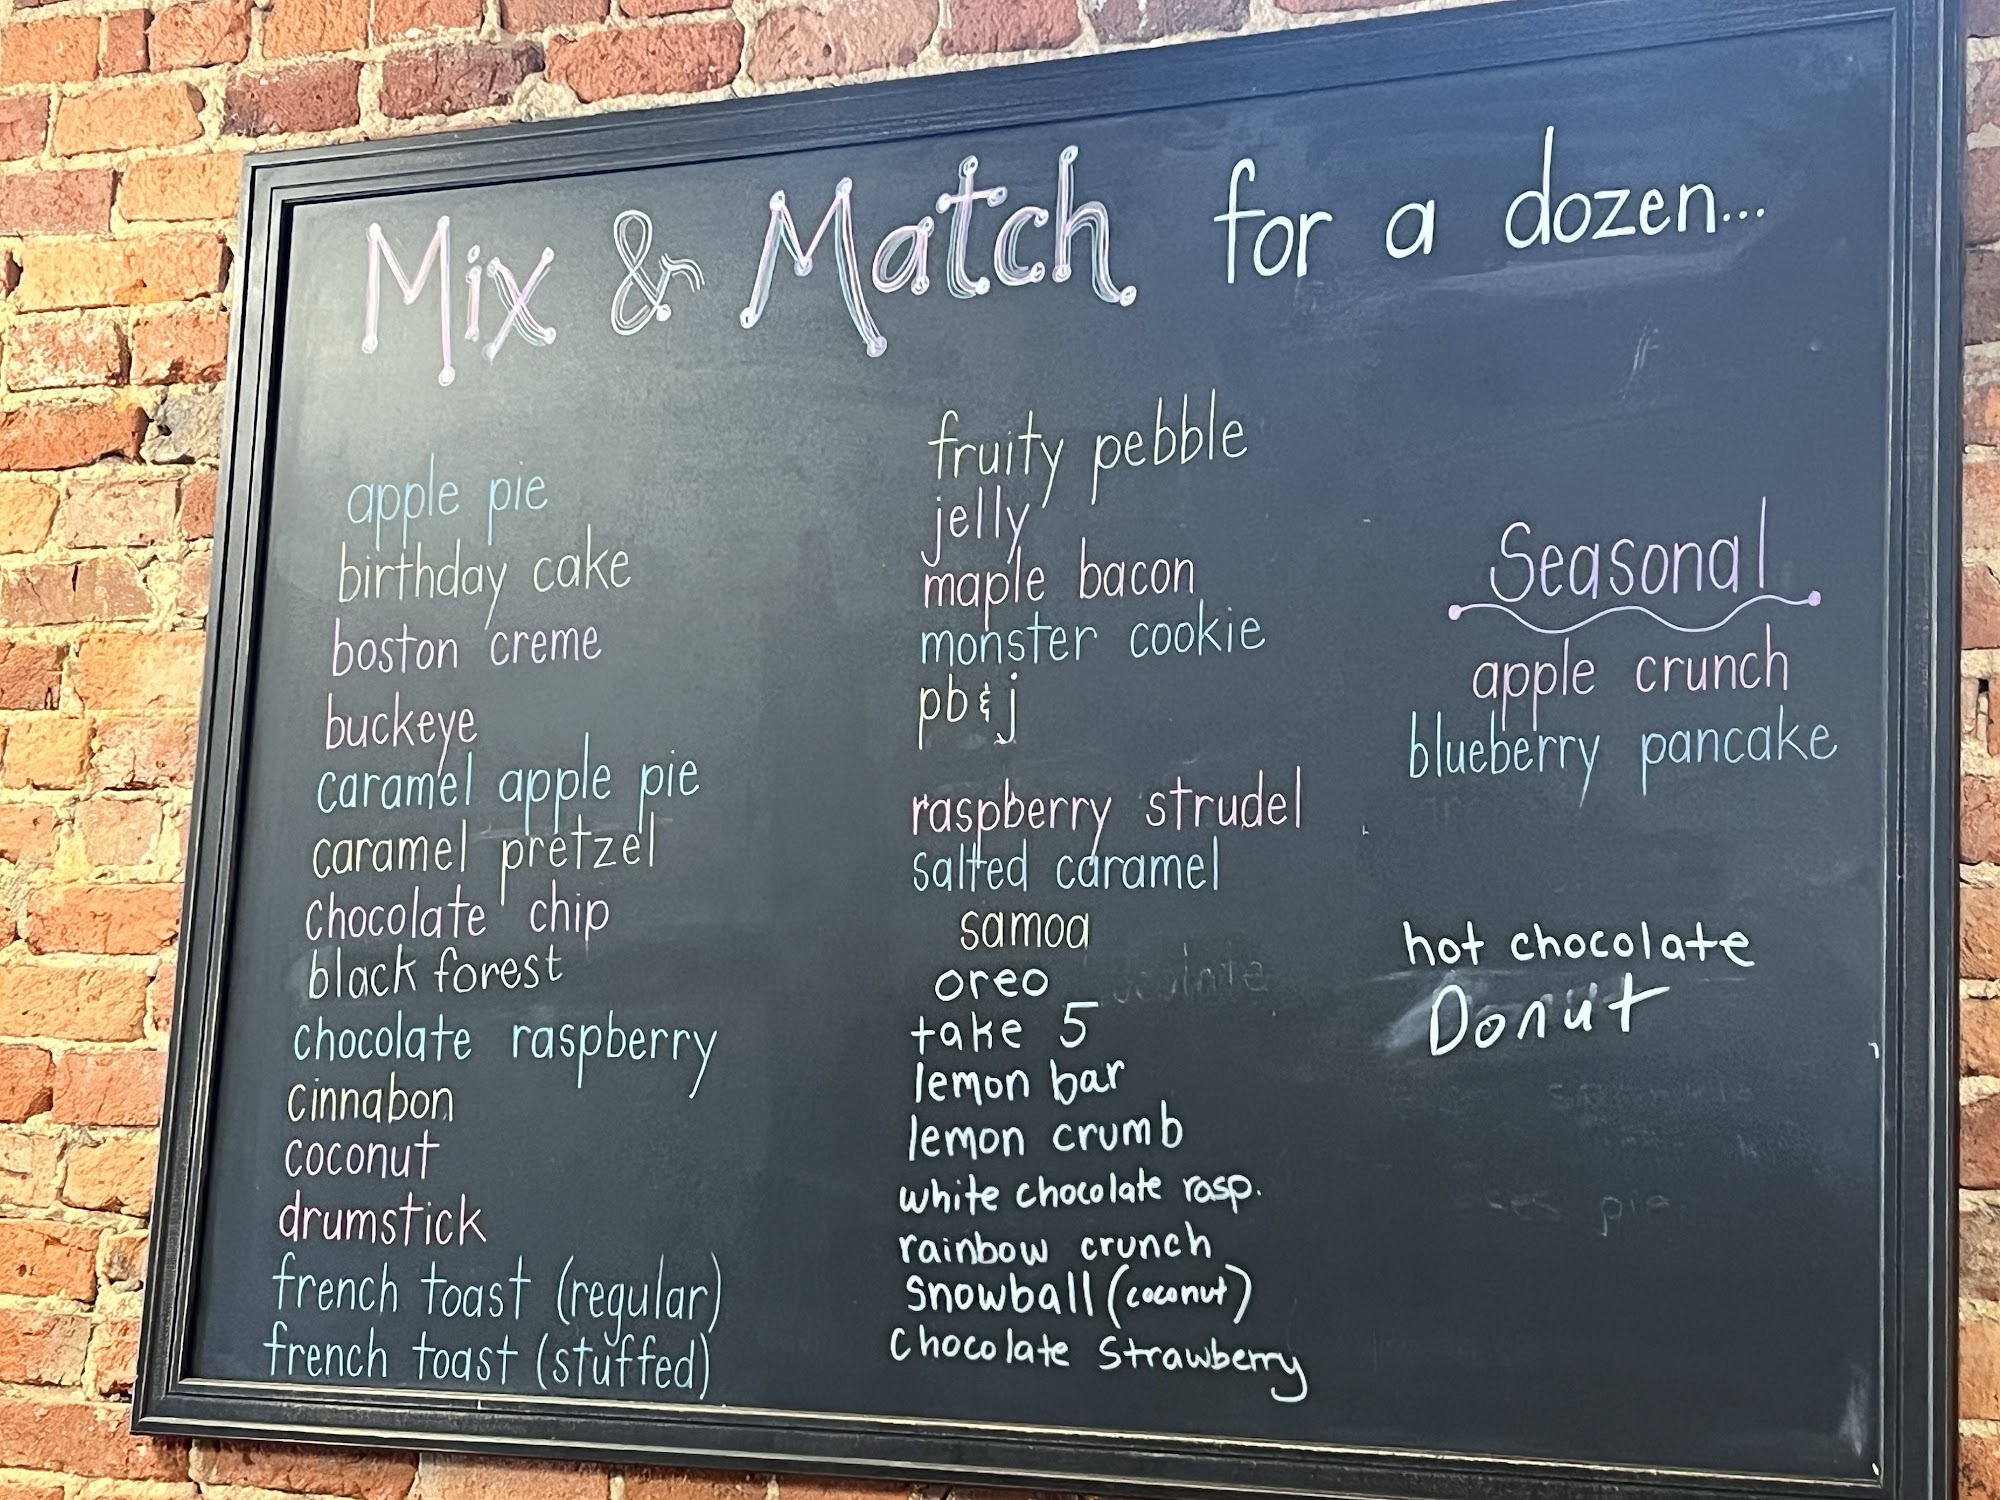 Mix & Match for a dozen...
apple pie
birthday cake
boston creme
buckeye
caramel apple pie
caramel pretzel
chocolate chip
black forest
chocolate raspberry
cinnabon
coconut
drumstick
french toast (regular)
french toast (stuffed)
fruity pebble
jelly
maple bacon
monster cookie
pb&j
raspberry strudel
salted caramel
samoa
oreo
take 5
lemon bar
lemon crumb
white chocolate rasp.
rainbow crunch
snowball (coconut)
chocolate strawberry
Seasonal
apple crunch
blueberry pancake
hot chocolate
Donut